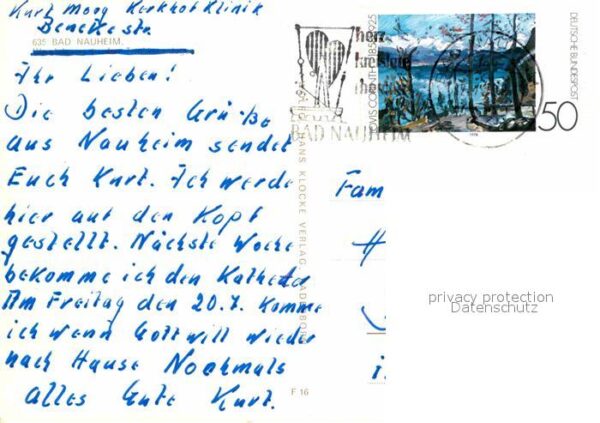 Kurt Moog Kerkhof Klinik
Benekestr.
635 BAD NAUHEIM.
Ihr Lieben!
Die besten Grüße
aus Nauheim sendet
Euch Kurt. Ich werde
hier auf den Kopf
gestellt. Nächste Woche
bekomme ich den Katheter
Am Freitag den 20.7. komme
ich wenn Gott will wieder
nach Hause Nochmals
alles Gute Kurt.
HANS KLOCKE VERLAG PADERBORN
F 16
herz
kreislauf
rheuma
BAD NAUHEIM
LOVIS CORINTH 1858-1925
1978
DEUTSCHE BUNDESPOST
50
Fam
H
privacy protection
Datenschutz
i